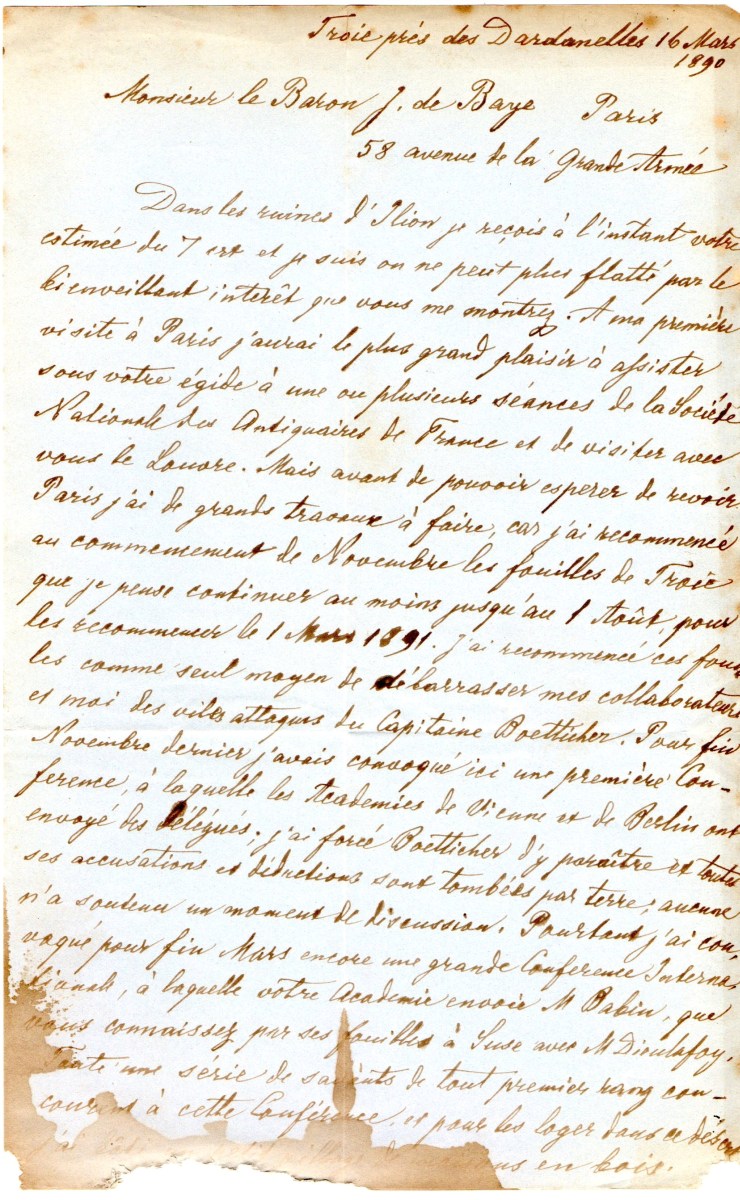 Troie près des Dardanelles 16 Mars
1890
Monsieur le Baron J. de Baye Paris
58 avenue de la Grande Armée
Dans les ruines d'Ilion je reçois à l'instant votre
estimée du 7 crt et je suis on ne peut plus flatté par le
bienveillant interêt que vous me montrez. A ma première
visite à Paris j'aurai le plus grand plaisir à assister
sous votre égide à une ou plusieurs séances de la Société
Nationale des Antiquaires de France et de visiter avec
vous le Louvre. Mais avant de pouvoir esperer de revoir
Paris j'ai de grands travaux à faire, car j'ai recommencé
au commencement de Novembre les fouilles de Troie
que je pense continuer au moins jusqu'au 1 Août, pour
les recommencer le 1 Mars 1891. J'ai recommencé ces fouil
les comme seul moyen de débarrasser mes collaborateurs
et moi des viles attaques du Capitaine Boetticher. Pour fin
Novembre dernier j'avais convoqué ici une première Con-
ference, à laquelle les Academies de Vienne et de Berlin ont
envoyé des délégués; j'ai forcé Boetticher d'y paraître et toutes
ses accusations et déductions sont tombées par terre; aucune
n'a soutenu un moment de discussion. Pourtant j'ai con-
voqué pour fin Mars encore une grande Conference Interna-
tionale, à laquelle votre Academie envoie M Babin, que
vous connaissez par ses fouilles à Suse avec M Dieulafoy.
Toute une série de savants de tout premier rang con-
courent à cette Conférence, et pour les loger dans ce désert
en bois.